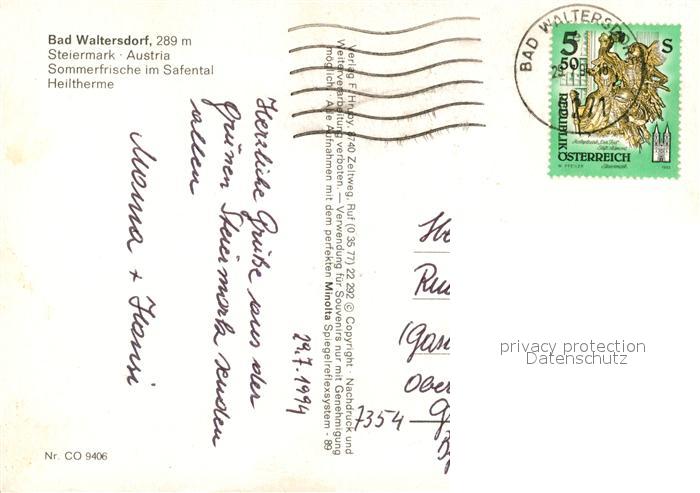 Bad Waltersdorf, 289 m
Steiermark · Austria
Sommerfrische im Safental
Heiltherme
Herzliche Grüße aus der
grünen Steiermark senden
allen
Mama + Hansi
29.7.1994
Verlag F. Hruby, 8740 Zeltweg, Ruf (0 35 77) 22 292 © Copyright · Nachdruck und
Weiterverarbeitung verboten. — Verwendung für Souvenirs nur mit Genehmigung
möglich. Alle Aufnahmen mit dem perfekten Minolta Spiegelreflexsystem - 89
BAD WALTERSDO
5 50 S
REPUBLIK
ÖSTERREICH
He
Ru
(Gas
Ober
7354 — G
privacy protection
Datenschutz
Nr. CO 9406